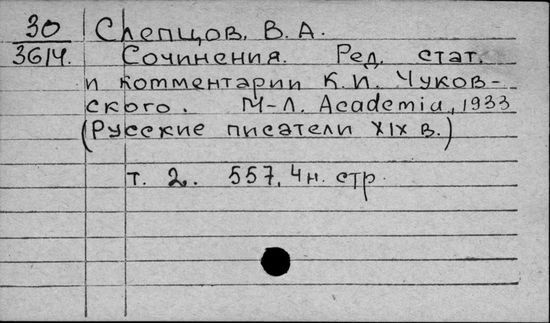 30 Слепцов, В. А.
3614. Сочинения. Ред. стат.
и комментарии К. И. Чуков-
ского. М-Л. Academia, 1933
(Русские писатели XIX в.)
т. 2. 557, 4 н. стр.